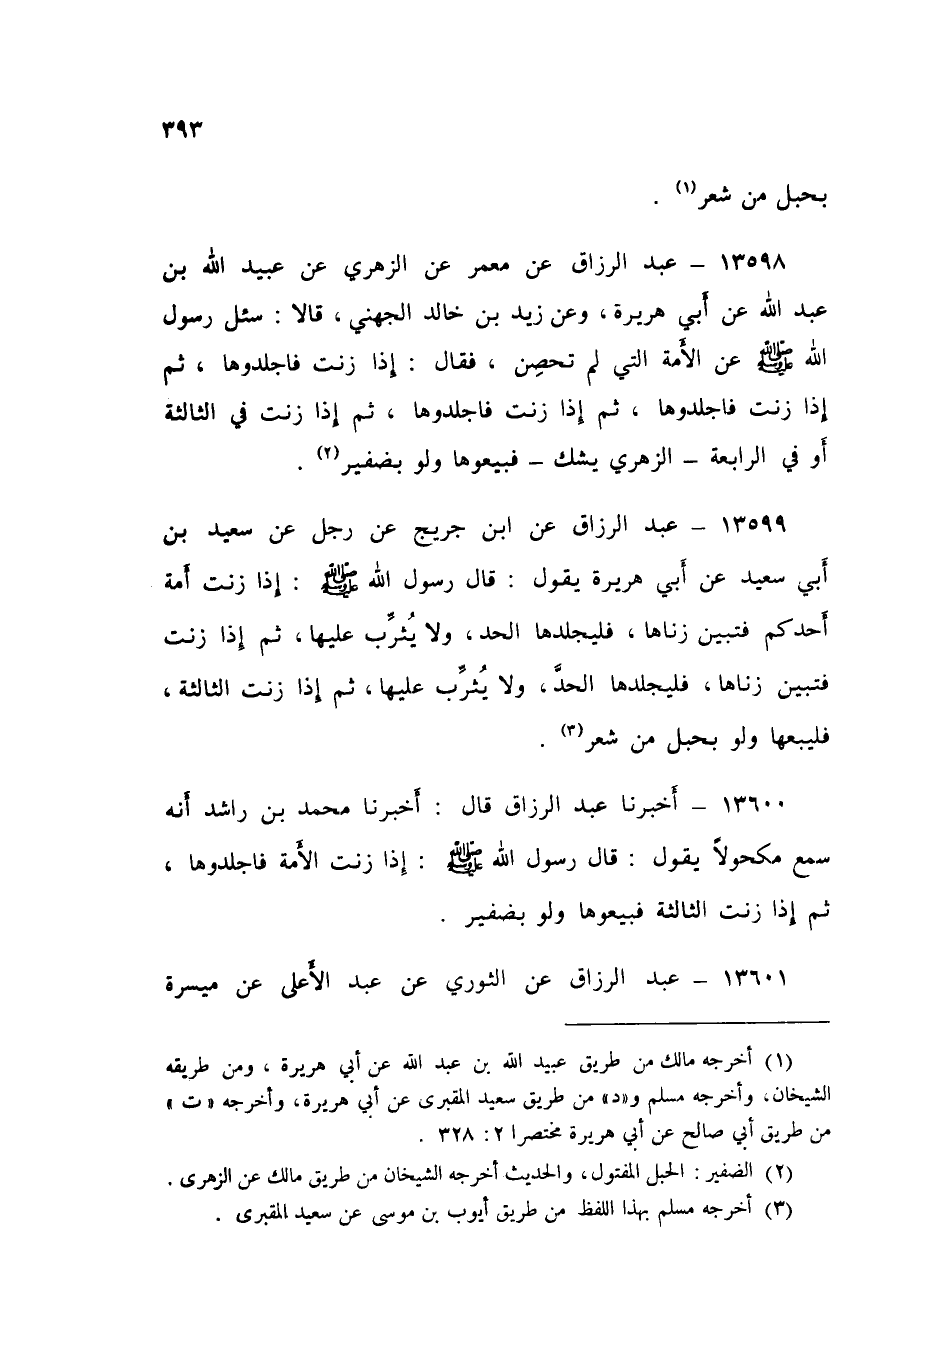 ٣٩٣
بحبل من شعر(١) .
١٣٥٩٨ – عبد الرزاق عن معمر عن الزهري عن عبيد الله بن
عبد الله عن أبي هريرة ، وعن زيد بن خالد الجهني ، قالا : سئل رسول
الله ﷺ عن الأمة التي لم تحصِن ، فقال : إذا زنت فاجلدوها ، ثم
إذا زنت فاجلدوها ، ثم إذا زنت فاجلدوها ، ثم إذا زنت في الثالثة
أو في الرابعة – الزهري يشك – فبيعوها ولو بضفير(٢) .
١٣٥٩٩ – عبد الرزاق عن ابن جريج عن رجل عن سعيد بن
أبي سعيد عن أبي هريرة يقول : قال رسول الله ﷺ : إذا زنت أمة
أحدكم فتبين زناها ، فليجلدها الحد ، ولا يُثرِّب عليها ، ثم إذا زنت
فتبين زناها ، فليجلدها الحدَّ ، ولا يُثرِّب عليها ، ثم إذا زنت الثالثة ،
فليبعها ولو بحبل من شعر(٣) .
١٣٦٠٠ – أخبرنا عبد الرزاق قال : أخبرنا محمد بن راشد أنه
سمع مكحولاً يقول : قال رسول الله ﷺ : إذا زنت الأمة فاجلدوها ،
ثم إذا زنت الثالثة فبيعوها ولو بضفير .
١٣٦٠١ – عبد الرزاق عن الثوري عن عبد الأعلى عن ميسرة
(١) أخرجه مالك من طريق عبيد الله بن عبد الله عن أبي هريرة ، ومن طريقه
الشيخان، وأخرجه مسلم و«د» من طريق سعيد المقبرى عن أبي هريرة، وأخرجه «ت»
من طريق أبي صالح عن أبي هريرة مختصرا ٢ : ٣٢٨ .
(٢) الضفير : الحبل المفتول، والحديث أخرجه الشيخان من طريق مالك عن الزهرى .
(٣) أخرجه مسلم بهذا اللفظ من طريق أيوب بن موسى عن سعيد المقبرى .